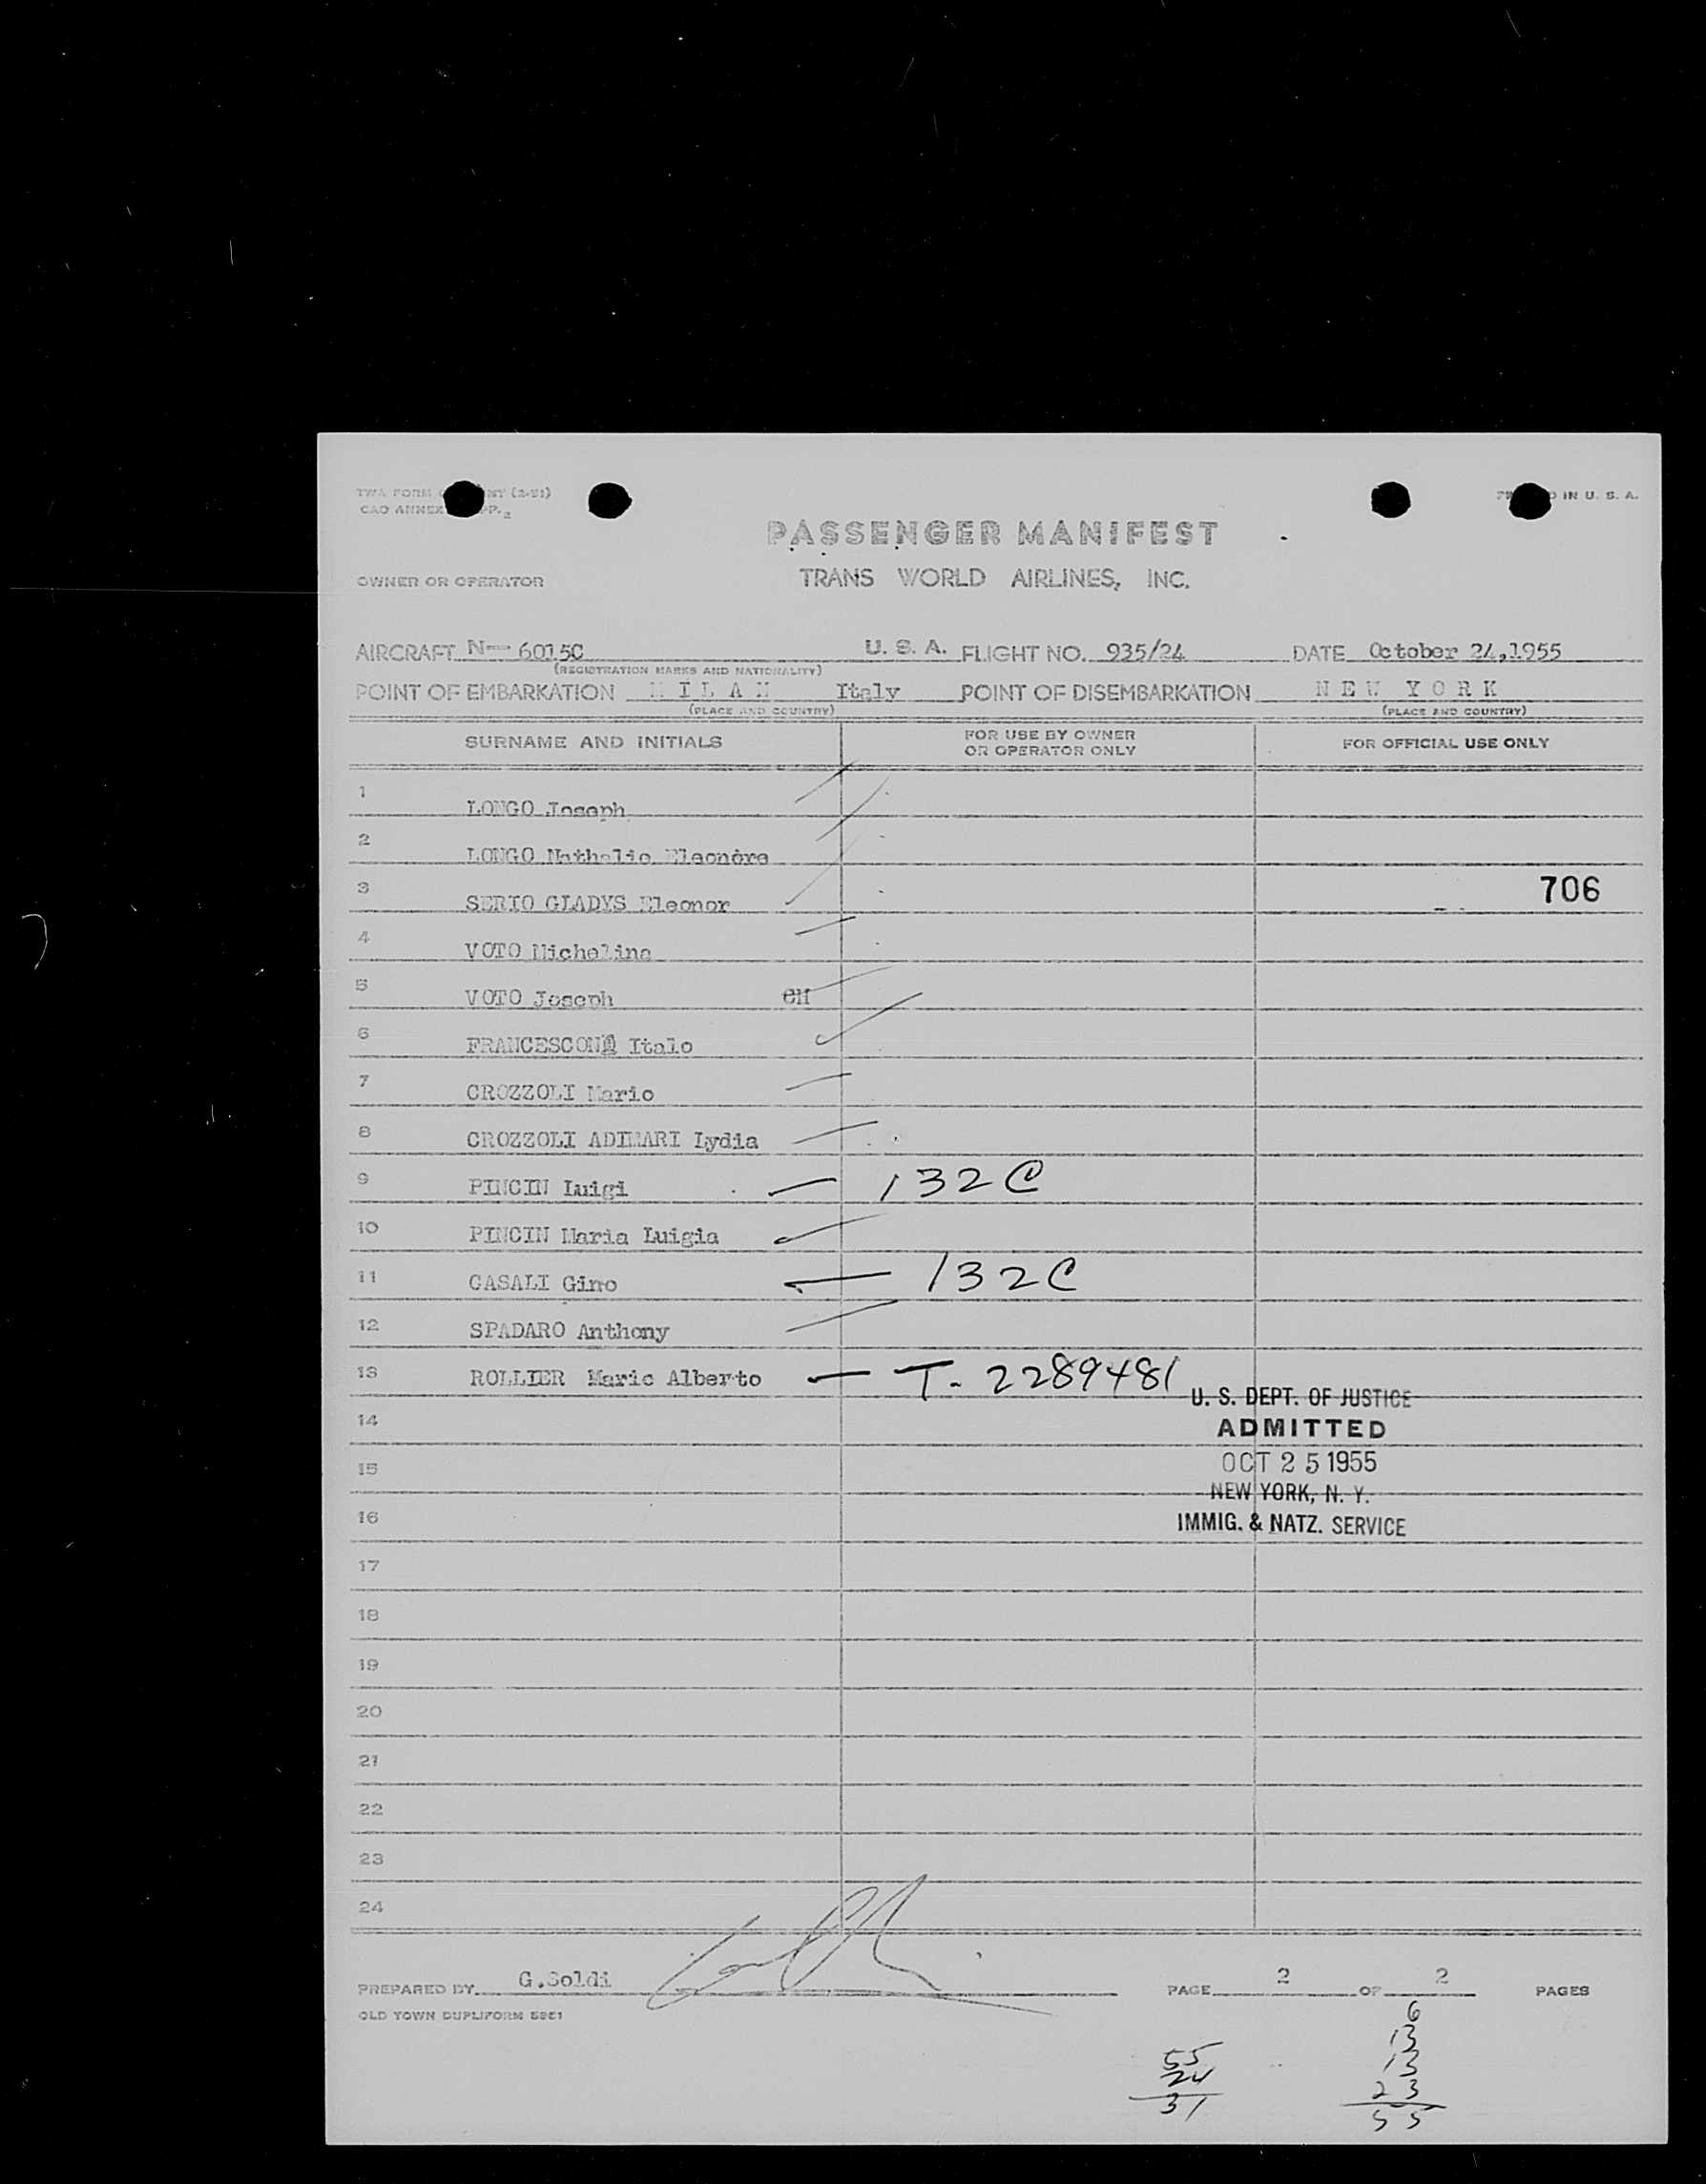 TWA FORM NT (2-51)
CAO ANNEX PP. 2
IN U. S. A.
PASSENGER MANIFEST
OWNER OR OPERATOR TRANS WORLD AIRLINES, INC.
AIRCRAFT N- 6015C U. S. A. FLIGHT NO. 935/24 DATE October 24,1955
(REGISTRATION MARKS AND NATIONALITY)
POINT OF EMBARKATION M I L A N Italy POINT OF DISEMBARKATION N E W Y O R K
(PLACE AND COUNTRY) (PLACE AND COUNTRY)
SURNAME AND INITIALS FOR USE BY OWNER OR OPERATOR ONLY FOR OFFICIAL USE ONLY
1 LONGO Joseph
2 LONGO Nathalie Eleonore
3 SERIO GLADYS Eleonor 706
4 VOTO Michelina
5 VOTO Joseph CH
6 FRANCESCON Italo
7 CROZZOLI Mario
8 CROZZOLI ADIMARI Lydia
9 PINCIN Luigi 132C
10 PINCIN Maria Luigia
11 CASALI Gino 132C
12 SPADARO Anthony
13 ROLLIER Mario Alberto T. 2289481
U. S. DEPT. OF JUSTICE
14 ADMITTED
15 OCT 25 1955
NEW YORK, N. Y.
16 IMMIG. & NATZ. SERVICE
17
18
19
20
21
22
23
24
PREPARED BY G.Soldi PAGE 2 OF 2 PAGES
OLD TOWN DUPLIFORM 5951
6
13
13
23
55
55
24
31